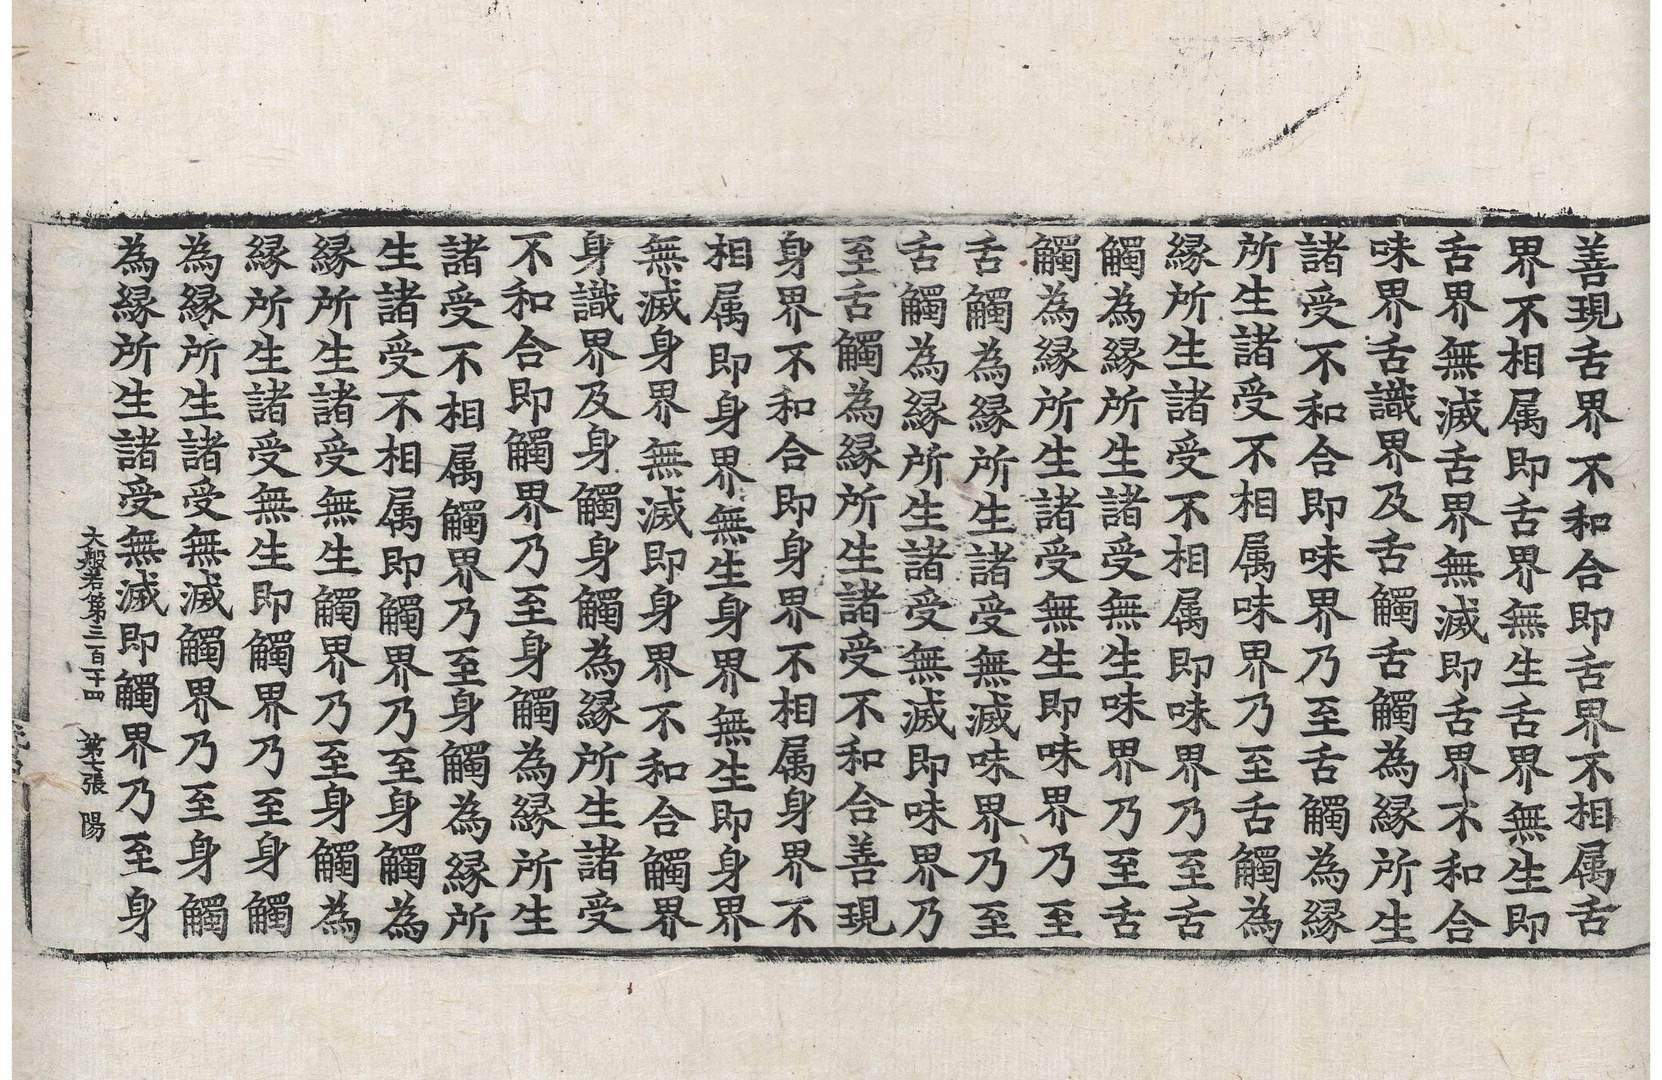 善現舌界不和合即舌界不相属舌
界不相属即舌界無生舌界無生即
舌界無滅舌界無滅即舌界不和合
味界舌識界及舌觸舌觸為縁所生
諸受不和合即味界乃至舌觸為縁
所生諸受不相属味界乃至舌觸為
縁所生諸受不相属即味界乃至舌
觸為縁所生諸受無生味界乃至舌
觸為縁所生諸受無生即味界乃至
舌觸為縁所生諸受無滅味界乃至
舌觸為縁所生諸受無滅即味界乃
至舌觸為縁所生諸受不和合善現
身界不和合即身界不相属身界不
相属即身界無生身界無生即身界
無滅身界無滅即身界不和合觸界
身識界及身觸身觸為縁所生諸受
不和合即觸界乃至身觸為縁所生
諸受不相属觸界乃至身觸為縁所
生諸受不相属即觸界乃至身觸為
縁所生諸受無生觸界乃至身觸為
縁所生諸受無生即觸界乃至身觸
為縁所生諸受無滅觸界乃至身觸
為縁所生諸受無滅即觸界乃至身
大般若第三百二十四 第七張 陽